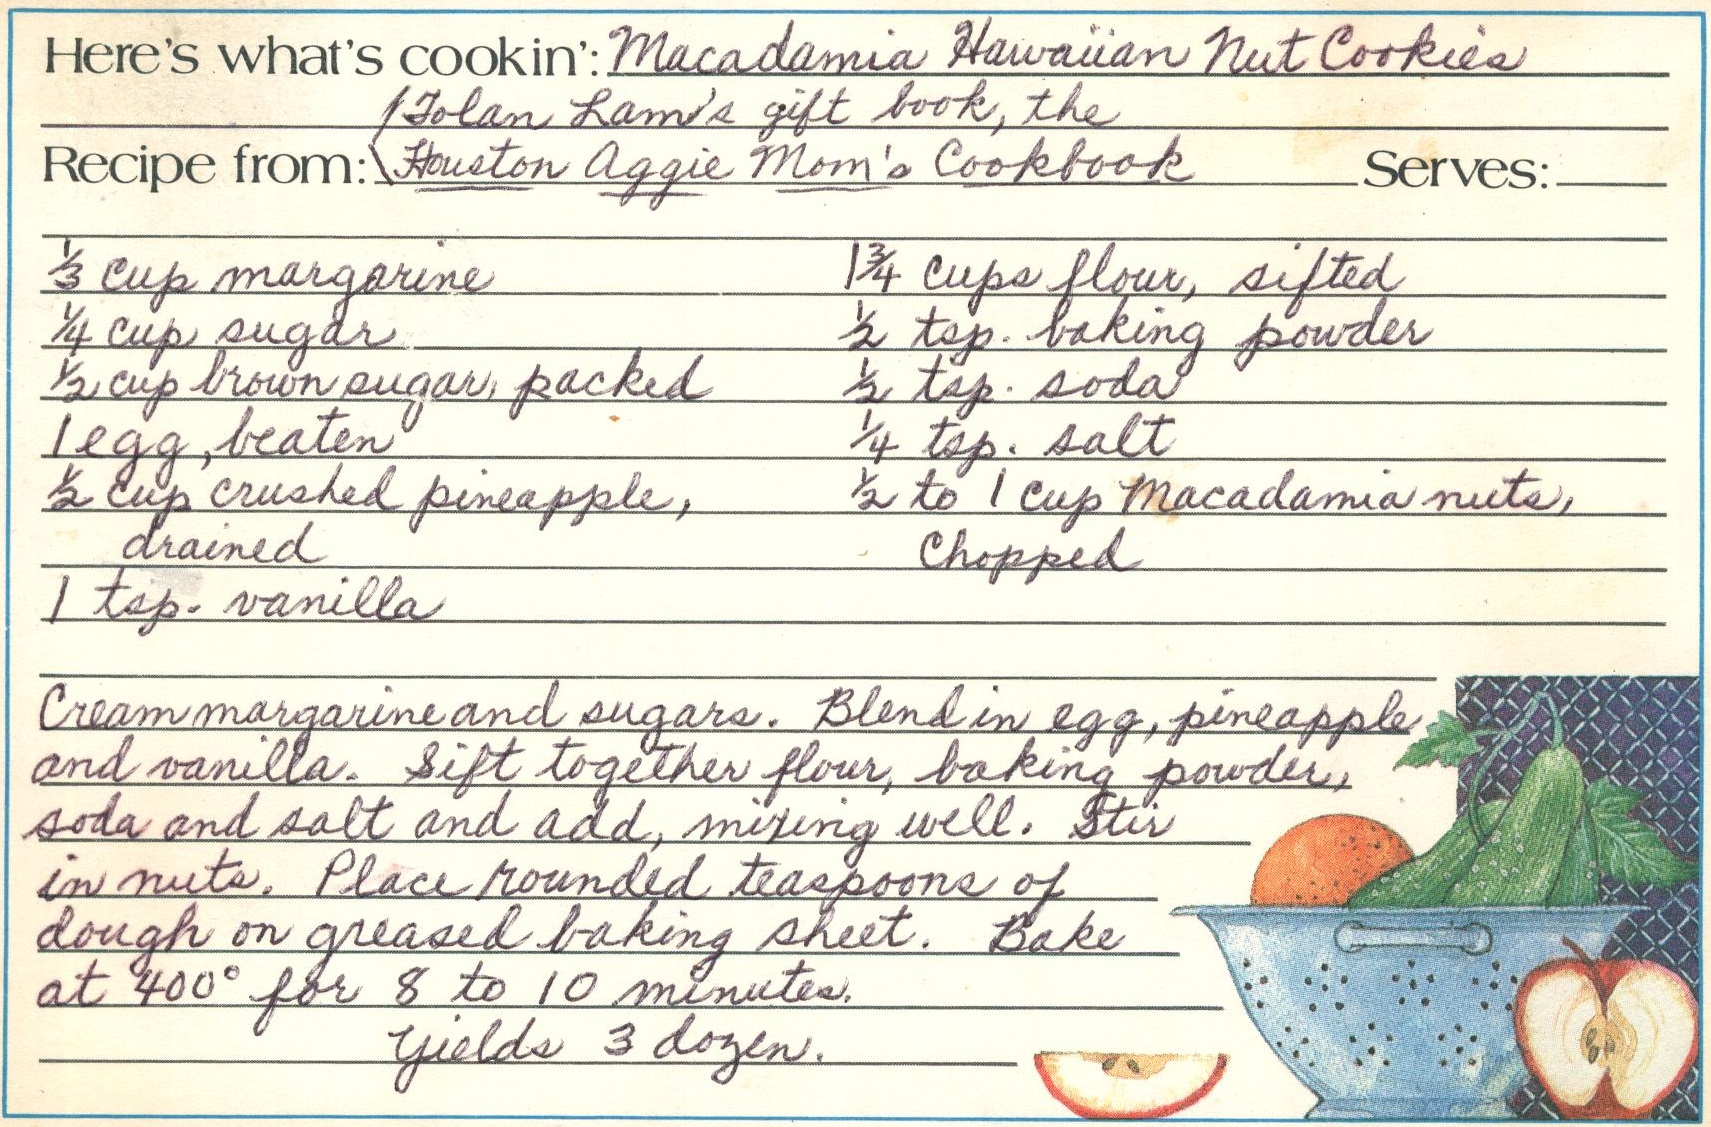 Here's what's cookin': Macadamia Hawaiian Nut Cookies
Tolan Lam's gift book, the
Recipe from: Houston Aggie Mom's Cookbook Serves:
1/3 cup margarine 1 3/4 cups flour, sifted
1/4 cup sugar 1/2 tsp. baking powder
1/2 cup brown sugar, packed 1/2 tsp. soda
1 egg, beaten 1/4 tsp. salt
1/2 cup crushed pineapple, 1/2 to 1 cup Macadamia nuts,
drained Chopped
1 tsp. vanilla
Cream margarine and sugars. Blend in egg, pineapple
and vanilla. Sift together flour, baking powder,
soda and salt and add, mixing well. Stir
in nuts. Place rounded teaspoons of
dough on greased baking sheet. Bake
at 400° for 8 to 10 minutes.
Yields 3 dozen.